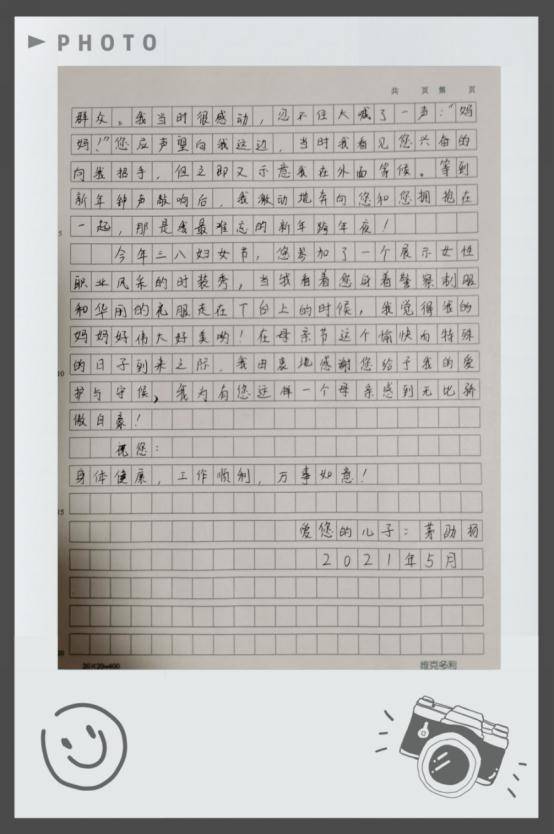 PHOTO
共 页 第 页
群众。我当时很感动，忍不住大喊了一声："妈
妈！"您应声望向我这边，当时我看见您兴奋的
向我招手，但立即又示意我在外面等候。等到
新年钟声敲响后，我激动地奔向您和您拥抱在
一起，那是我最难忘的新年跨年夜！
5
今年三八妇女节，您参加了一个展示女性
职业风采的时装秀，当我看着您身着警察制服
和华丽的礼服走在T台上的时候，我觉得我的
妈妈好伟大好美哟！在母亲节这个愉快而特殊
的日子到来之际，我由衷地感谢您给予我的爱
10
护与守候，我为有您这样一个母亲感到无比骄
傲自豪！
祝您：
身体健康，工作顺利，万事如意！
15
爱您的儿子：茅劢扬
2021年5月
20
20×20=400
维克多利